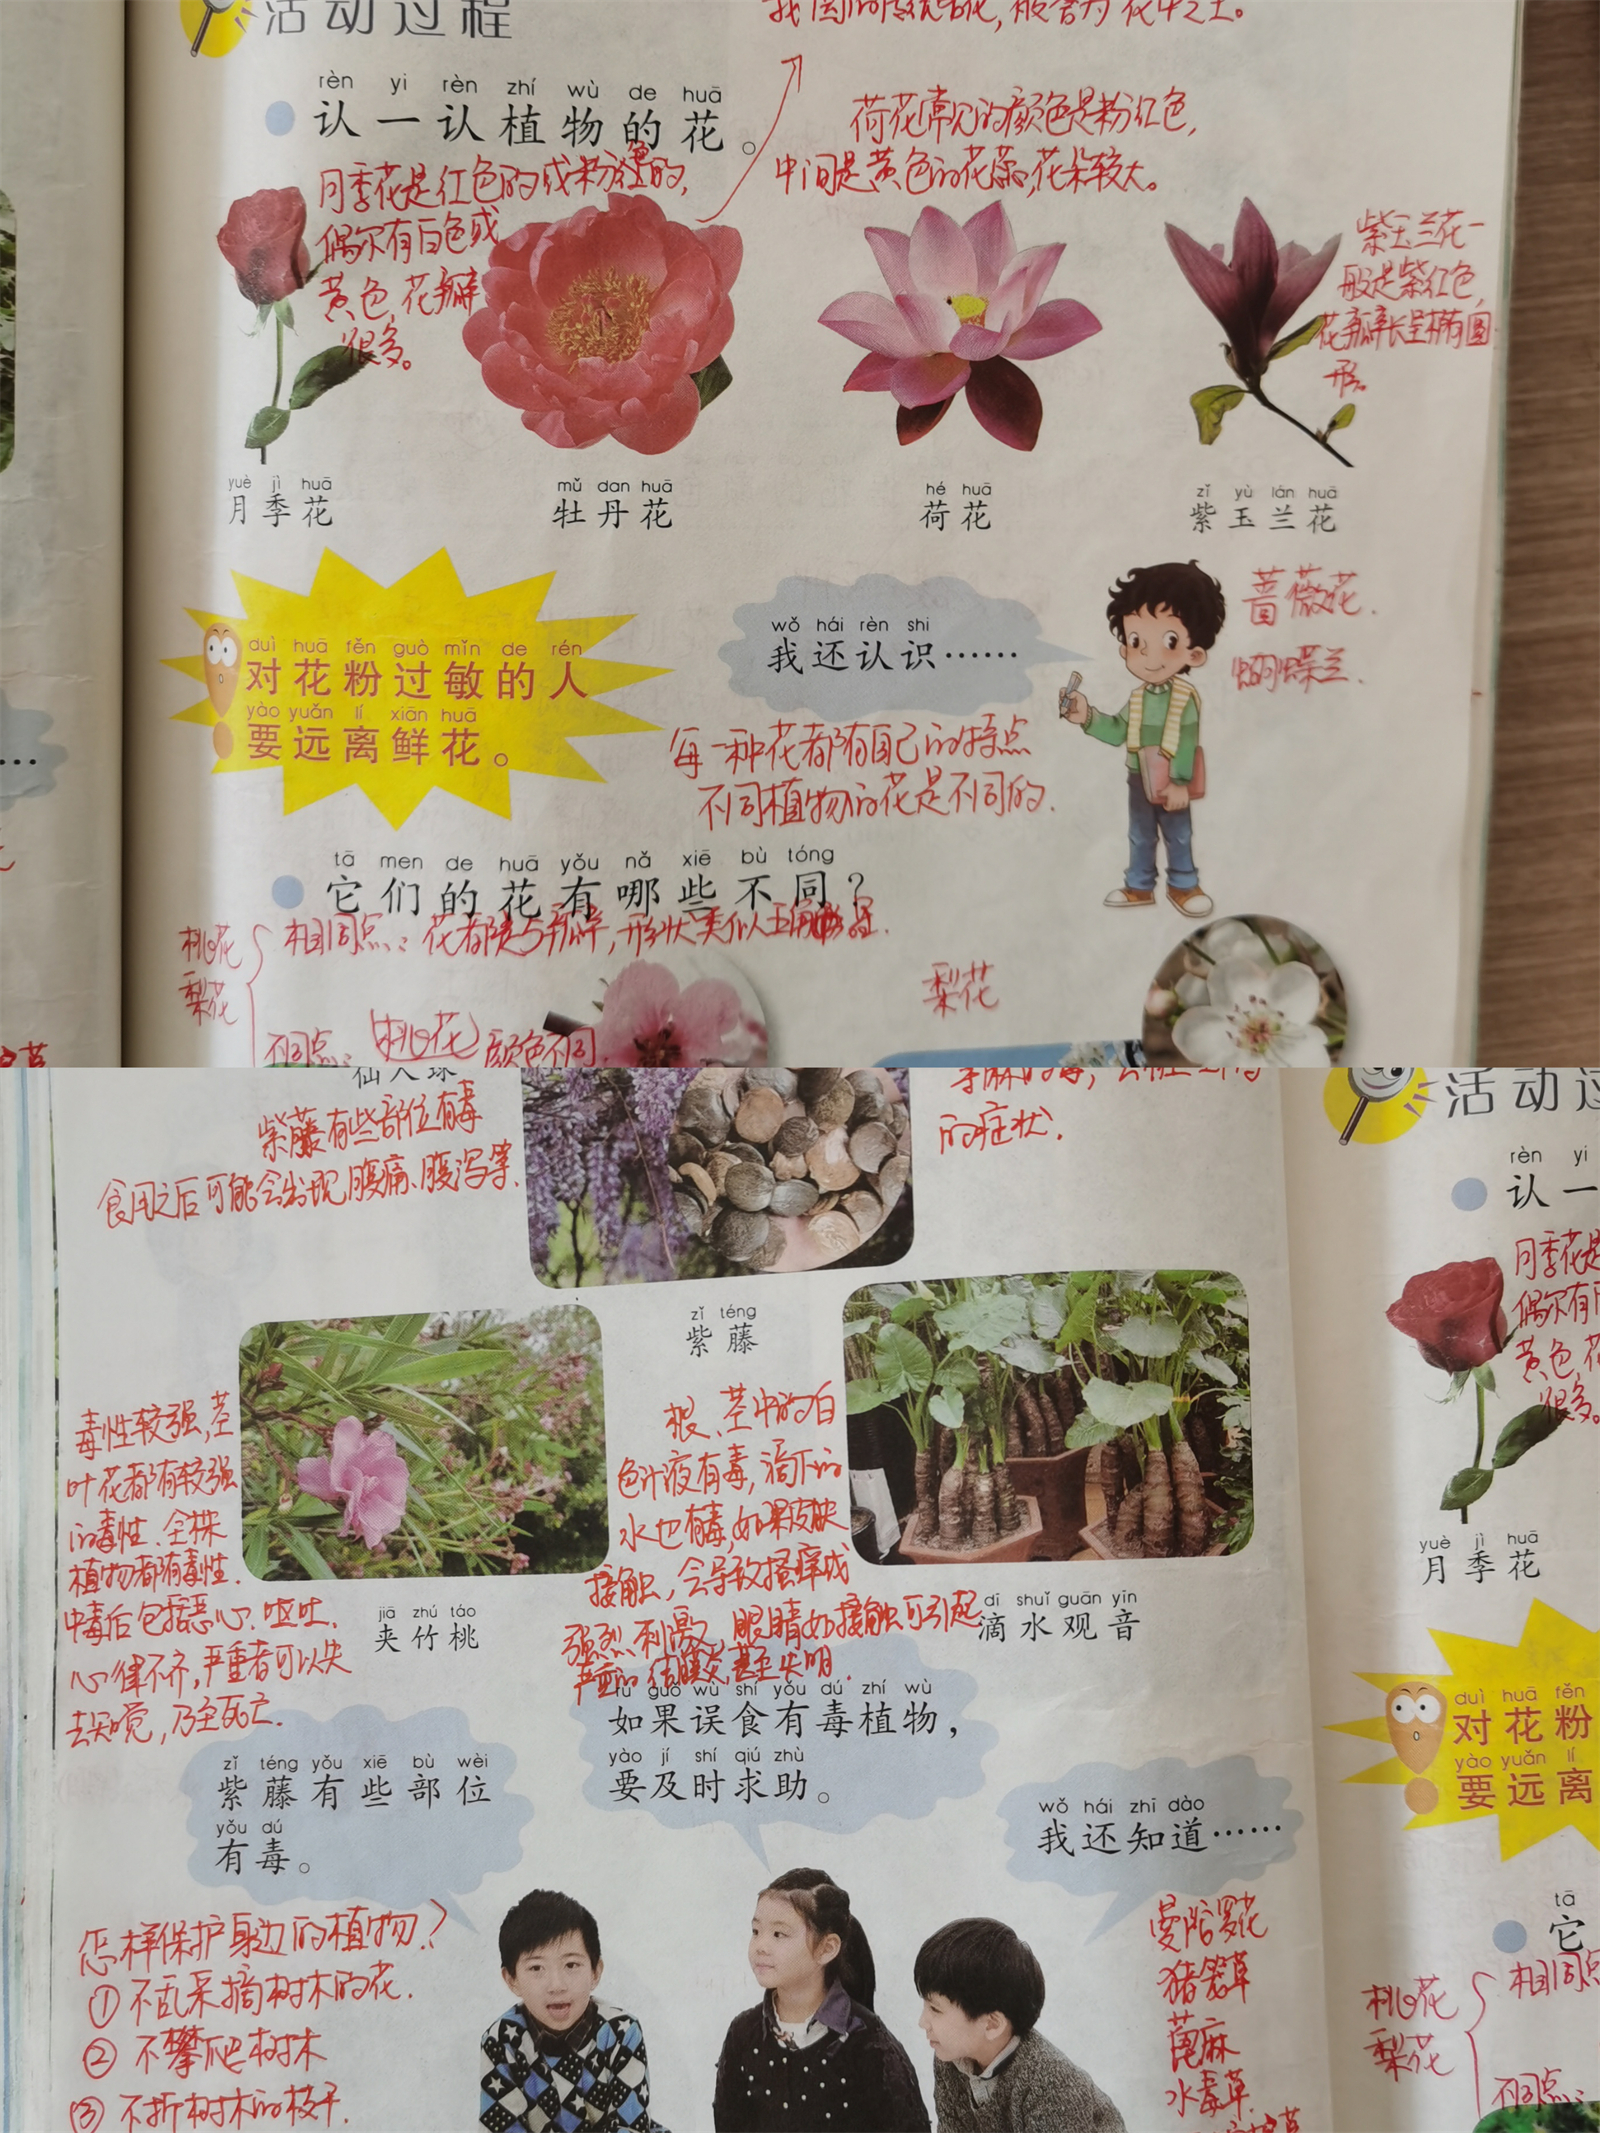 活动过程
花中之王。
rèn yi rèn zhí wù de huā
认一认植物的花。
荷花常见的颜色是粉红色,
中间是黄色的花蕊,花朵较大。
月季花是红色的或粉红色的,
偶尔有白色或
黄色,花瓣
很多。
紫玉兰花一
般是紫红色,
花瓣长呈椭圆
形。
yuè jì huā
月季花
mǔ dan huā
牡丹花
hé huā
荷花
zǐ yù lán huā
紫玉兰花
duì huā fěn guò mǐn de rén
对花粉过敏的人
yào yuǎn lí xiān huā
要远离鲜花。
wǒ hái rèn shi
我还认识……
蔷薇花.
蝴蝶兰.
每一种花都有自己的特点
不同植物的花是不同的.
tā men de huā yǒu nǎ xiē bù tóng
它们的花有哪些不同?
桃花
梨花
相同点:花都是5瓣,形状类似五角星.
梨花
不同点:(桃花)颜色不同.
仙人球
紫藤有些部位有毒
食用之后可能会出现腹痛、腹泻等.
的症状.
zǐ téng
紫藤
毒性较强,茎
叶花都有较强
的毒性.全株
植物都有毒性.
中毒后包括恶心.呕吐.
心律不齐,严重者可以失
去知觉,乃至死亡.
jiā zhú táo
夹竹桃
根、茎中的白
色汁液有毒,滴下的
水也有毒,如果皮肤
接触,会导致搔痒或
强烈刺激,眼睛如接触可引起
严重的结膜炎,甚至失明.
dī shuǐ guān yīn
滴水观音
zǐ téng yǒu xiē bù wèi
紫藤有些部位
yǒu dú
有毒。
rú guǒ wù shí yǒu dú zhí wù
如果误食有毒植物,
yào jí shí qiú zhù
要及时求助。
wǒ hái zhī dào
我还知道……
怎样保护身边的植物?
①不乱采摘树木的花.
②不攀爬树木
③不折树木的枝干.
曼陀罗花
猪笼草
蓖麻
水毒草.
活动过
rèn yi
认一
月季花是
偶尔有白
黄色,花
很多。
yuè jì huā
月季花
duì huā fěn
对花粉
yào yuǎn lí
要远离
tā
它
桃花
梨花
相同点
不同点: